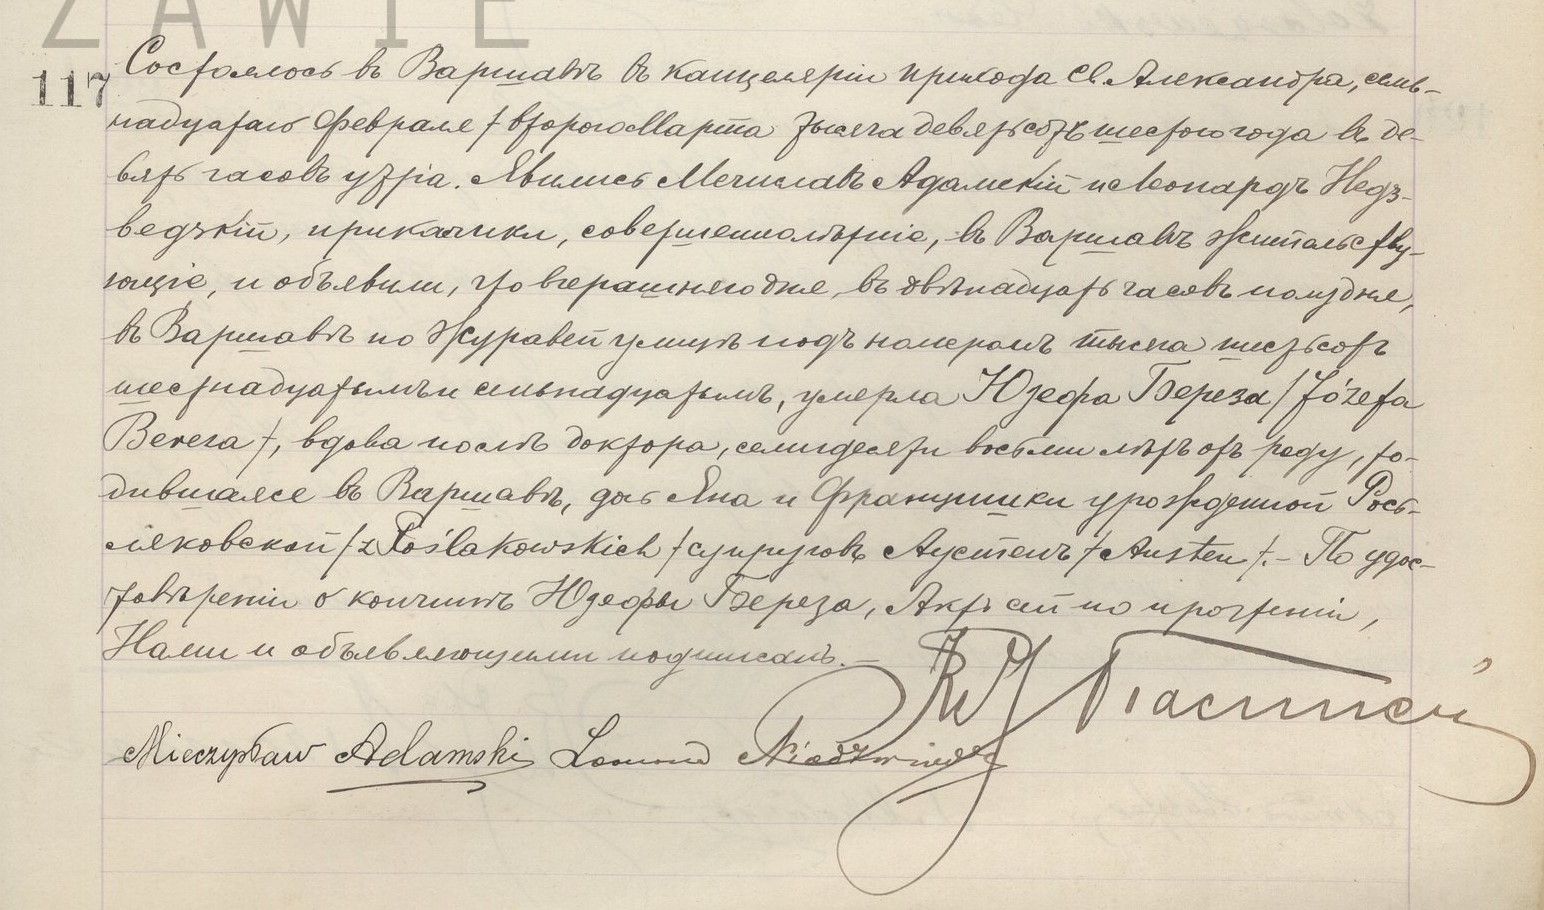 ZAWIE
117
Состоялось въ Варшавѣ въ канцеляріи прихода Св. Александра, семь-
надцатаго Февраля / второго Марта тысяча девятьсотъ шестого года въ де-
вять часовъ утра. Явились Мечиславъ Адамскій и Леонардъ Недз-
ведзкій, прикащики, совершеннолѣтніе, въ Варшавѣ жительству-
ющіе, и объявили, что вчерашняго дня, въ двѣнадцать часовъ полудня,
въ Варшавѣ по Журавей улицѣ подъ номеромъ тысяча шестьсотъ
шестнадцатымъ и семнадцатымъ, умерла Юзефа Береза / Józefa
Bereza /, вдова послѣ доктора, семидесяти восьми лѣтъ отъ роду, ро-
дившаяся въ Варшавѣ, дочь Яна и Францишки урожденной Рось-
ляковской / z Roślakowskich / супруговъ Аустенъ / Austen /. – По удос-
товѣреніи о кончинѣ Юзефы Береза, Актъ сей по прочтеніи,
Нами и объявляющими подписанъ. –
Mieczysław Adamski Leonard